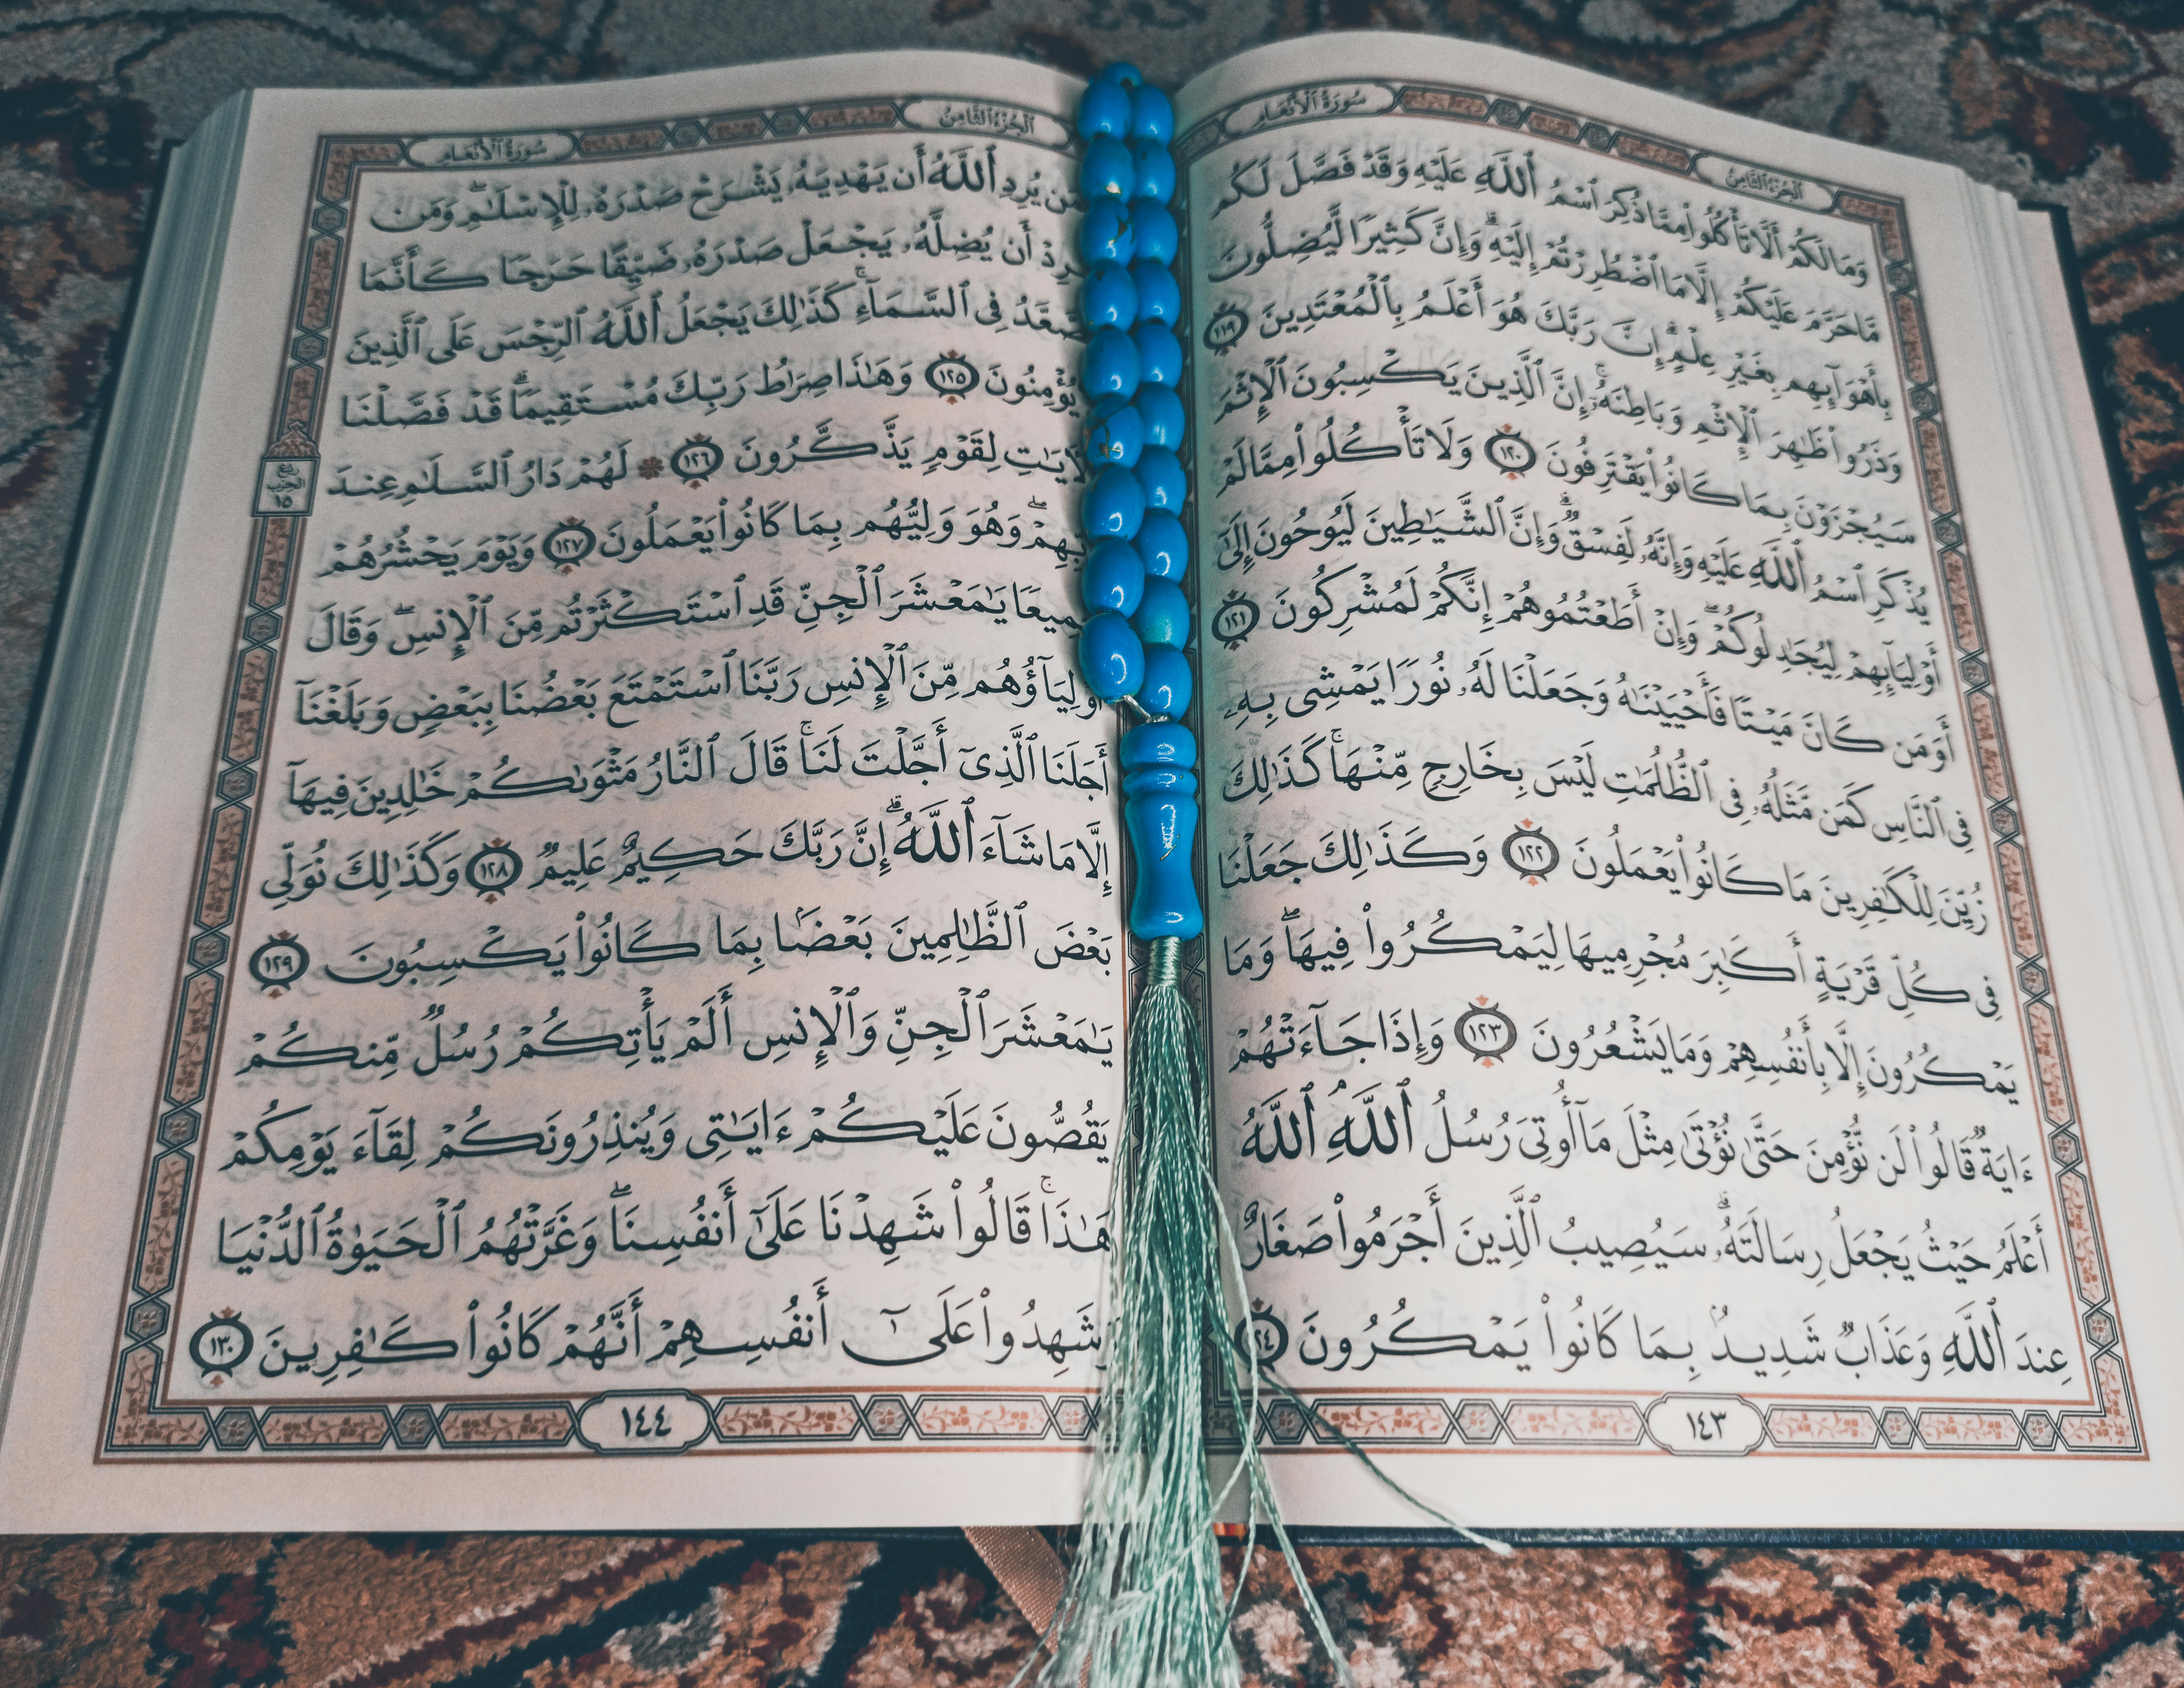 سُورَةُ الأَنْعَامِ
الجُزْءُ الثَّامِنُ
وَمَا لَكُمْ أَلَّا تَأْكُلُوا۟ مِمَّا ذُكِرَ ٱسْمُ ٱللَّهِ عَلَيْهِ وَقَدْ فَصَّلَ لَكُم
مَّا حَرَّمَ عَلَيْكُمْ إِلَّا مَا ٱضْطُرِرْتُمْ إِلَيْهِ ۗ وَإِنَّ كَثِيرًا لَّيُضِلُّونَ
بِأَهْوَآئِهِم بِغَيْرِ عِلْمٍ ۗ إِنَّ رَبَّكَ هُوَ أَعْلَمُ بِٱلْمُعْتَدِينَ ١١٩
وَذَرُوا۟ ظَٰهِرَ ٱلْإِثْمِ وَبَاطِنَهُۥٓ ۚ إِنَّ ٱلَّذِينَ يَكْسِبُونَ ٱلْإِثْمَ
سَيُجْزَوْنَ بِمَا كَانُوا۟ يَقْتَرِفُونَ ١٢٠ وَلَا تَأْكُلُوا۟ مِمَّا لَمْ
يُذْكَرِ ٱسْمُ ٱللَّهِ عَلَيْهِ وَإِنَّهُۥ لَفِسْقٌ ۗ وَإِنَّ ٱلشَّيَٰطِينَ لَيُوحُونَ إِلَىٰٓ
أَوْلِيَآئِهِمْ لِيُجَٰدِلُوكُمْ ۖ وَإِنْ أَطَعْتُمُوهُمْ إِنَّكُمْ لَمُشْرِكُونَ ١٢١
أَوَمَن كَانَ مَيْتًا فَأَحْيَيْنَٰهُ وَجَعَلْنَا لَهُۥ نُورًا يَمْشِى بِهِۦ
فِى ٱلنَّاسِ كَمَن مَّثَلُهُۥ فِى ٱلظُّلُمَٰتِ لَيْسَ بِخَارِجٍ مِّنْهَا ۚ كَذَٰلِكَ
زُيِّنَ لِلْكَٰفِرِينَ مَا كَانُوا۟ يَعْمَلُونَ ١٢٢ وَكَذَٰلِكَ جَعَلْنَا
فِى كُلِّ قَرْيَةٍ أَكَٰبِرَ مُجْرِمِيهَا لِيَمْكُرُوا۟ فِيهَا ۖ وَمَا
يَمْكُرُونَ إِلَّا بِأَنفُسِهِمْ وَمَا يَشْعُرُونَ ١٢٣ وَإِذَا جَآءَتْهُمْ
ءَايَةٌ قَالُوا۟ لَن نُّؤْمِنَ حَتَّىٰ نُؤْتَىٰ مِثْلَ مَآ أُوتِىَ رُسُلُ ٱللَّهِ ۘ ٱللَّهُ
أَعْلَمُ حَيْثُ يَجْعَلُ رِسَالَتَهُۥ ۗ سَيُصِيبُ ٱلَّذِينَ أَجْرَمُوا۟ صَغَارٌ
عِندَ ٱللَّهِ وَعَذَابٌ شَدِيدٌۢ بِمَا كَانُوا۟ يَمْكُرُونَ ١٢٤
١٤٣
الجُزْءُ الثَّامِنُ
سُورَةُ الأَنْعَامِ
فَمَن يُرِدِ ٱللَّهُ أَن يَهْدِيَهُۥ يَشْرَحْ صَدْرَهُۥ لِلْإِسْلَٰمِ ۖ وَمَن
أَن يُضِلَّهُۥ يَجْعَلْ صَدْرَهُۥ ضَيِّقًا حَرَجًا كَأَنَّمَا
يَصَّعَّدُ فِى ٱلسَّمَآءِ ۚ كَذَٰلِكَ يَجْعَلُ ٱللَّهُ ٱلرِّجْسَ عَلَى ٱلَّذِينَ
يُؤْمِنُونَ ١٢٥ وَهَٰذَا صِرَٰطُ رَبِّكَ مُسْتَقِيمًا ۗ قَدْ فَصَّلْنَا
ٱلْءَايَٰتِ لِقَوْمٍ يَذَّكَّرُونَ ١٢٦ ۞ لَهُمْ دَارُ ٱلسَّلَٰمِ عِندَ
رُبْعُ الحِزْبِ ١٥
رَبِّهِمْ ۖ وَهُوَ وَلِيُّهُم بِمَا كَانُوا۟ يَعْمَلُونَ ١٢٧ وَيَوْمَ يَحْشُرُهُمْ
جَمِيعًا يَٰمَعْشَرَ ٱلْجِنِّ قَدِ ٱسْتَكْثَرْتُم مِّنَ ٱلْإِنسِ ۖ وَقَالَ
أَوْلِيَآؤُهُم مِّنَ ٱلْإِنسِ رَبَّنَا ٱسْتَمْتَعَ بَعْضُنَا بِبَعْضٍ وَبَلَغْنَآ
أَجَلَنَا ٱلَّذِىٓ أَجَّلْتَ لَنَا ۚ قَالَ ٱلنَّارُ مَثْوَىٰكُمْ خَٰلِدِينَ فِيهَآ
إِلَّا مَا شَآءَ ٱللَّهُ ۗ إِنَّ رَبَّكَ حَكِيمٌ عَلِيمٌ ١٢٨ وَكَذَٰلِكَ نُوَلِّى
بَعْضَ ٱلظَّٰلِمِينَ بَعْضًۢا بِمَا كَانُوا۟ يَكْسِبُونَ ١٢٩
يَٰمَعْشَرَ ٱلْجِنِّ وَٱلْإِنسِ أَلَمْ يَأْتِكُمْ رُسُلٌ مِّنكُمْ
يَقُصُّونَ عَلَيْكُمْ ءَايَٰتِى وَيُنذِرُونَكُمْ لِقَآءَ يَوْمِكُمْ
هَٰذَا ۚ قَالُوا۟ شَهِدْنَا عَلَىٰٓ أَنفُسِنَا ۖ وَغَرَّتْهُمُ ٱلْحَيَوٰةُ ٱلدُّنْيَا
وَشَهِدُوا۟ عَلَىٰٓ أَنفُسِهِمْ أَنَّهُمْ كَانُوا۟ كَٰفِرِينَ ١٣٠
١٤٤